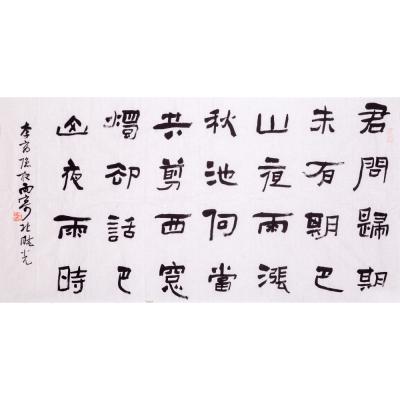 君問歸期
未有期巴
山夜雨漲
秋池何當
共剪西窓
燭却話巴
山夜雨時
李商隐夜雨寄北